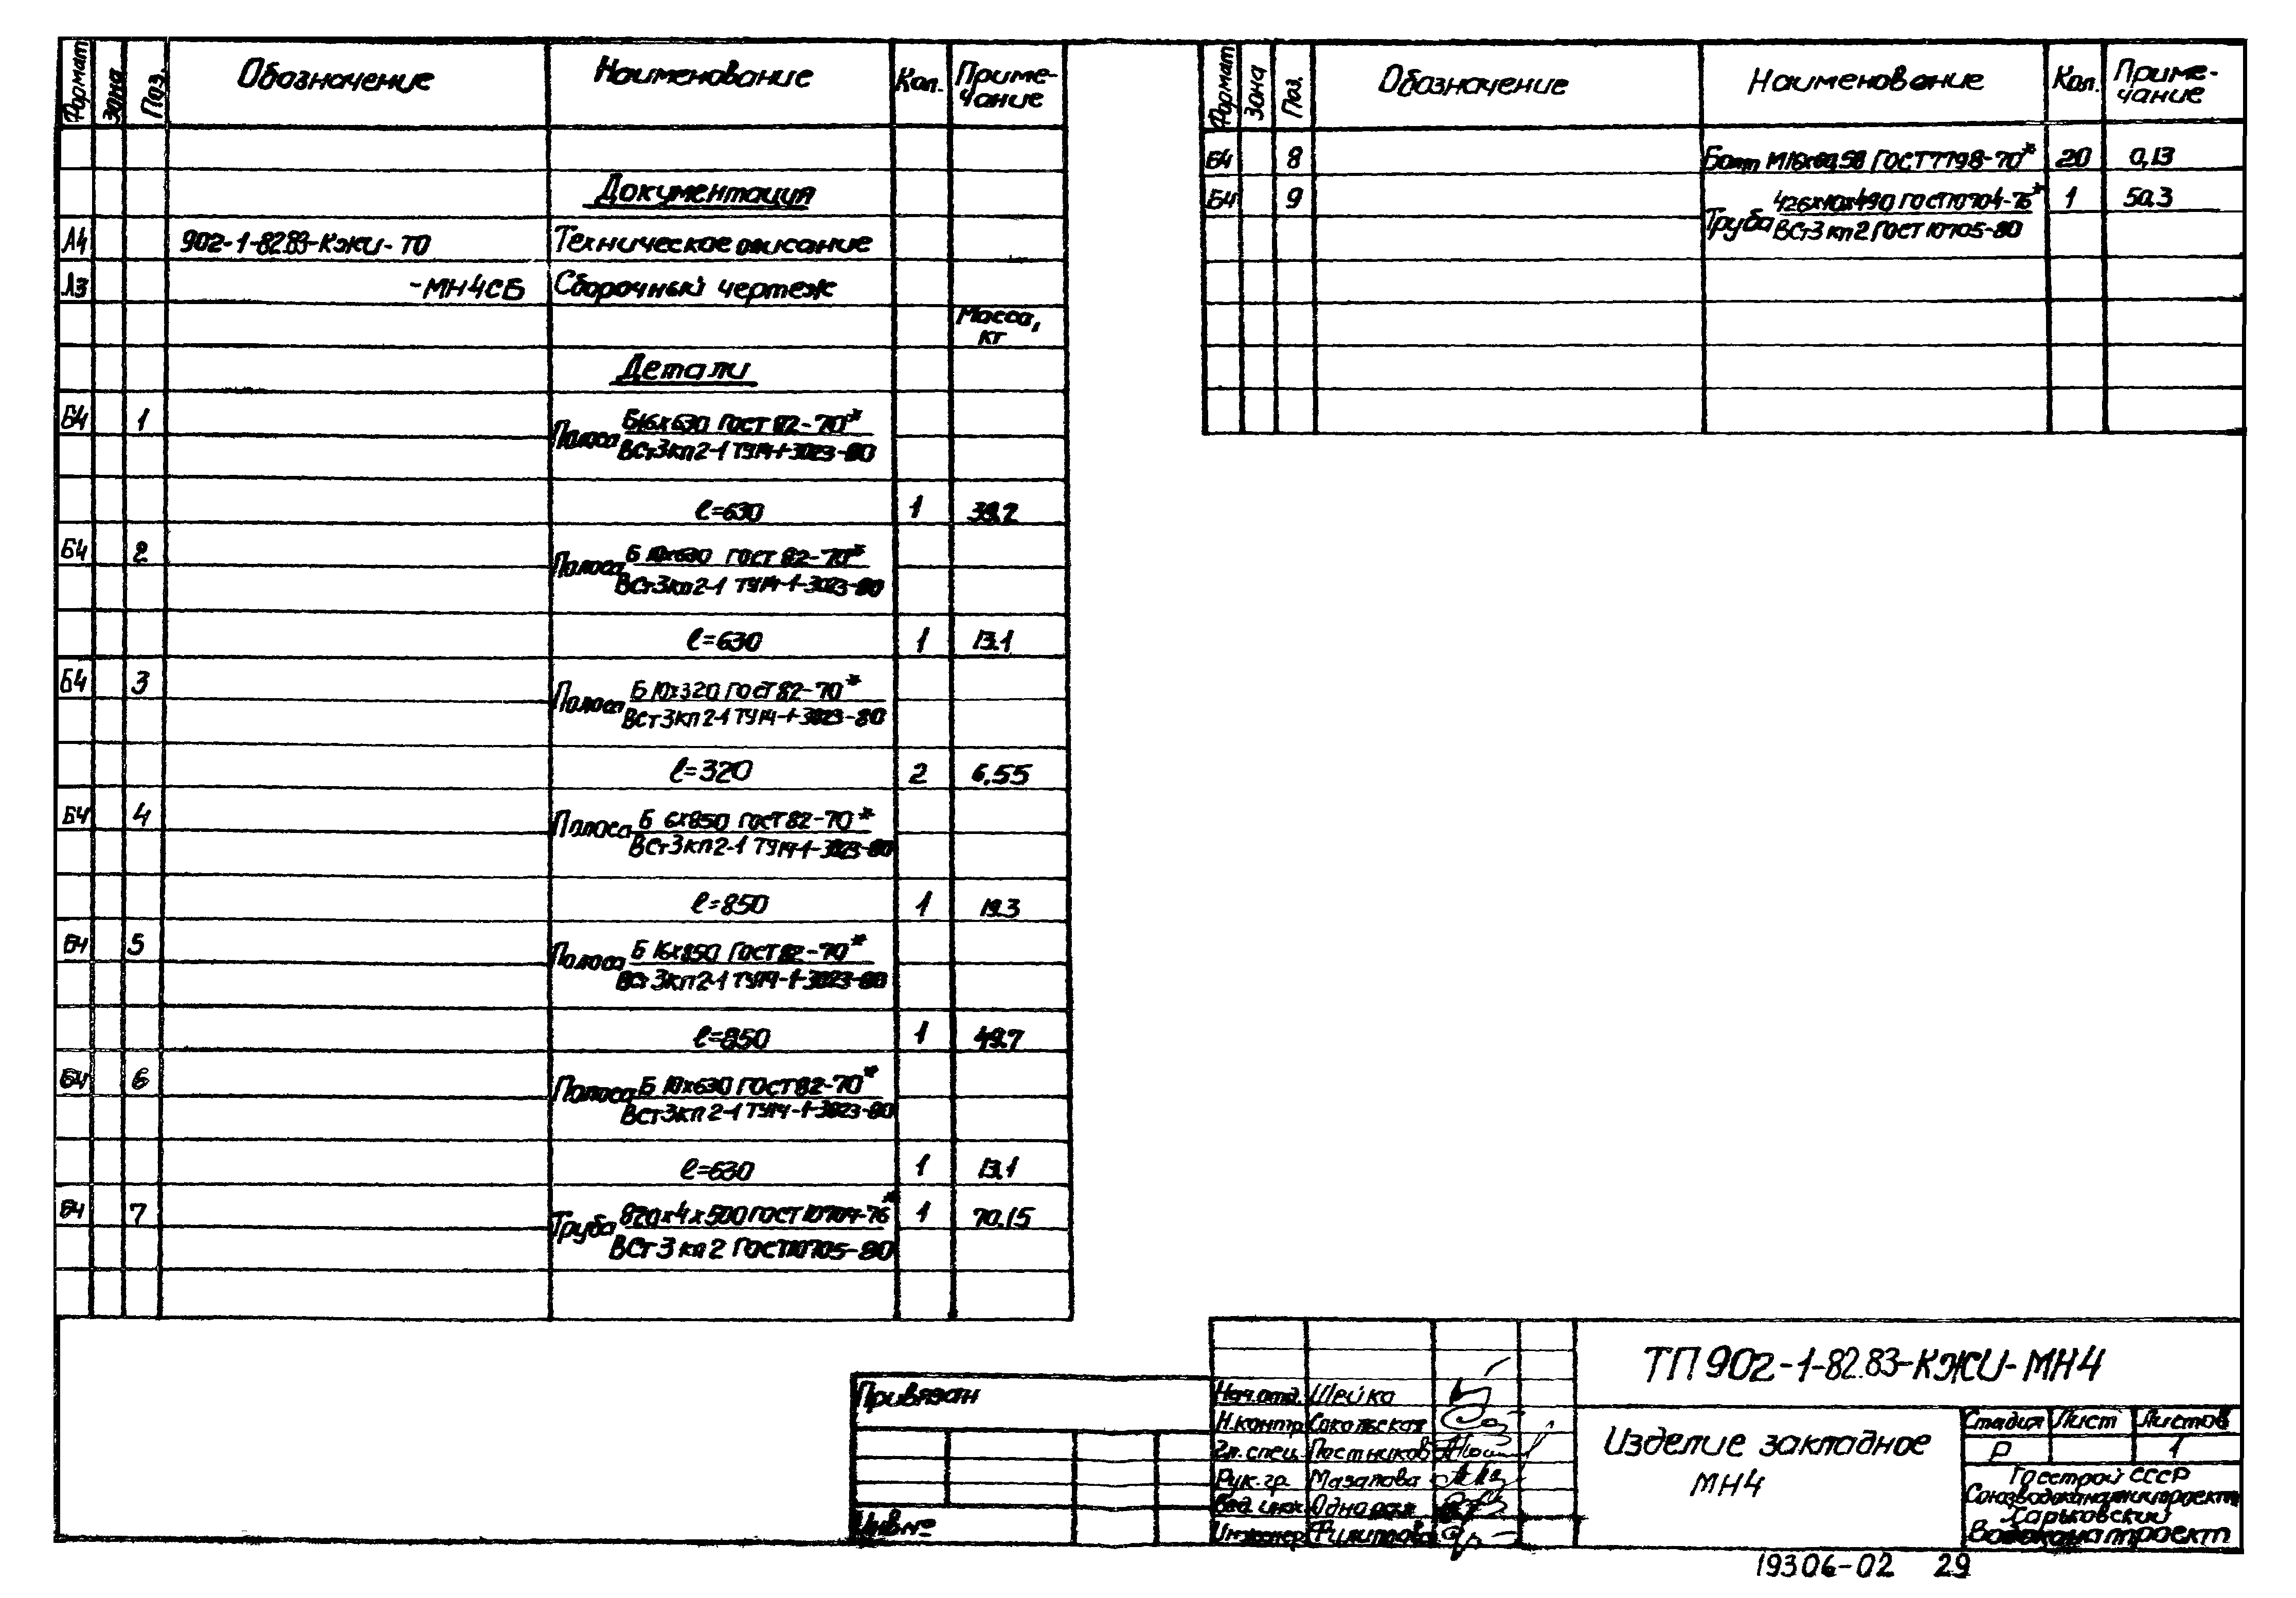 Формат Зона Поз. Обозначение Наименование Кол. Приме-
чание
Документация
А4 902-1-82.83-КЖИ-ТО Техническое описание
А3 -МН4СБ Сборочный чертеж
Масса,
кг
Детали
Б4 1 Полоса Б16х630 ГОСТ 82-70*
ВСт3кп2-1 ТУ14-1-3023-80
ℓ=630 1 39.2
Б4 2 Полоса Б 10х630 ГОСТ 82-70*
ВСт3кп2-1 ТУ14-1-3023-80
ℓ=630 1 13.1
Б4 3 Полоса Б 10х320 ГОСТ 82-70*
ВСт3кп2-1 ТУ14-1-3023-80
ℓ=320 2 6.55
Б4 4 Полоса Б 6х850 ГОСТ 82-70*
ВСт3кп2-1 ТУ14-1-3023-80
ℓ=850 1 19.3
Б4 5 Полоса Б 16х850 ГОСТ 82-70*
ВСт3кп2-1 ТУ14-1-3023-80
ℓ=850 1 49.7
Б4 6 Полоса Б 10х630 ГОСТ 82-70*
ВСт3кп2-1 ТУ14-1-3023-80
ℓ=630 1 13.1
Б4 7 Труба 820х4х500 ГОСТ 10704-76* 1 70.15
ВСт3кп2 ГОСТ 10705-80
Формат Зона Поз. Обозначение Наименование Кол. Приме-
чание
Б4 8 Болт М16х60.58 ГОСТ 7798-70* 20 0,13
Б4 9 Труба 426х10х490 ГОСТ 10704-76* 1 50.3
ВСт3кп2 ГОСТ 10705-80
Привязан
Инв.№
Нач.отд. Шейко
Н.контр. Сокольская
Гл.спец. Постников
Рук.гр. Мазалова
Вед.инж.
Инженер Филиппова
ТП 902-1-82.83-КЖИ-МН4
Изделие закладное
МН4
Стадия Лист Листов
Р 1
Госстрой СССР
Союзводоканалниипроект
Харьковский
Водоканалпроект
19306-02 29